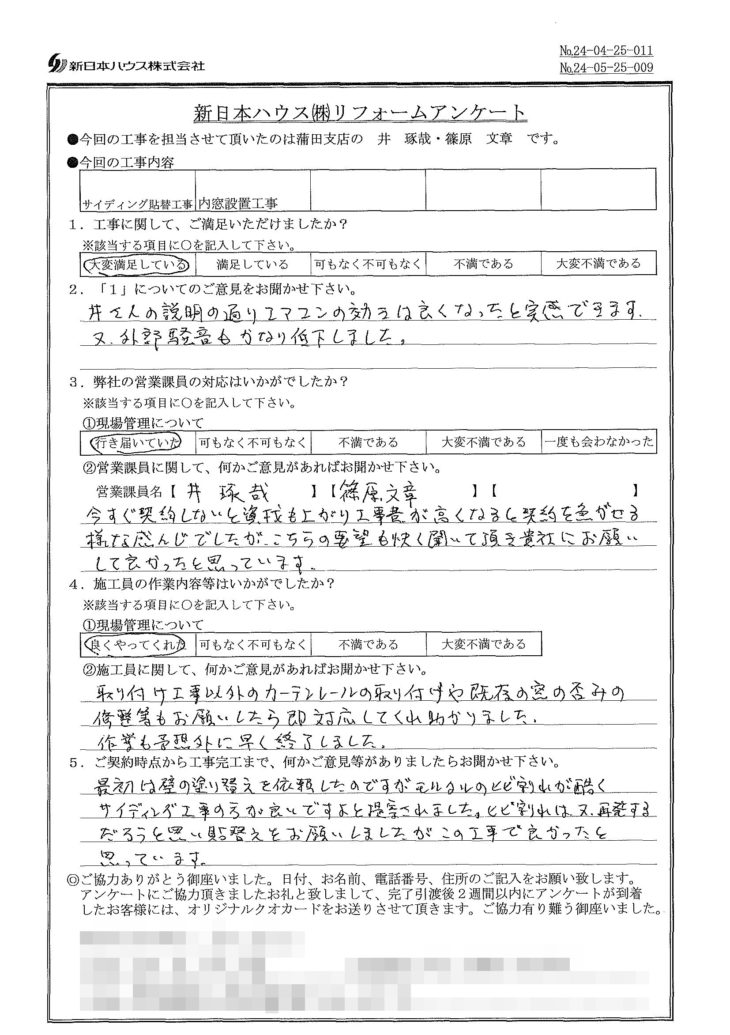 新日本ハウス株式会社
№24-04-25-011
№24-05-25-009
新日本ハウス㈱リフォームアンケート
●今回の工事を担当させて頂いたのは蒲田支店の　井　琢哉・篠原　文章　です。
●今回の工事内容
サイディング貼替工事 内窓設置工事
1．工事に関して、ご満足いただけましたか？
※該当する項目に○を記入して下さい。
大変満足している 満足している 可もなく不可もなく 不満である 大変不満である
2．「1」についてのご意見をお聞かせ下さい。
井さんの説明の通りエアコンの効きは良くなったと実感できます.
又.外部騒音もかなり低下しました。
3．弊社の営業課員の対応はいかがでしたか？
※該当する項目に○を記入して下さい。
①現場管理について
行き届いていた 可もなく不可もなく 不満である 大変不満である 一度も会わなかった
②営業課員に関して、何かご意見があればお聞かせ下さい。
営業課員名【 井　琢哉 】【篠原文章 】【 】
今すぐ契約しないと資材も上がり工事費が高くなると契約を急がせる
様な感んじでしたが.こちらの要望も快く聞いて頂き貴社にお願い
して良かったと思っています.
4．施工員の作業内容等はいかがでしたか？
※該当する項目に○を記入して下さい。
①現場管理について
良くやってくれた 可もなく不可もなく 不満である 大変不満である
②施工員に関して、何かご意見があればお聞かせ下さい。
取り付け工事以外のカーテンレールの取り付けや既存の窓の歪みの
修整等もお願いしたら即対応してくれ助かりました.
作業も予想外に早く終了しました。
5．ご契約時点から工事完工まで、何かご意見等がありましたらお聞かせ下さい。
最初は壁の塗り替えを依頼したのですがモルタルのヒビ割れが酷く
サイディング工事の方が良いですよと提案されました。ヒビ割れは.又.再発する
だろうと思い貼替えをお願いしましたがこの工事で良かったと
思っています.
◎ご協力ありがとう御座いました。日付、お名前、電話番号、住所のご記入をお願い致します。
アンケートにご協力頂きましたお礼と致しまして、完了引渡後２週間以内にアンケートが到着
したお客様には、オリジナルクオカードをお送りさせて頂きます。ご協力有り難う御座いました。